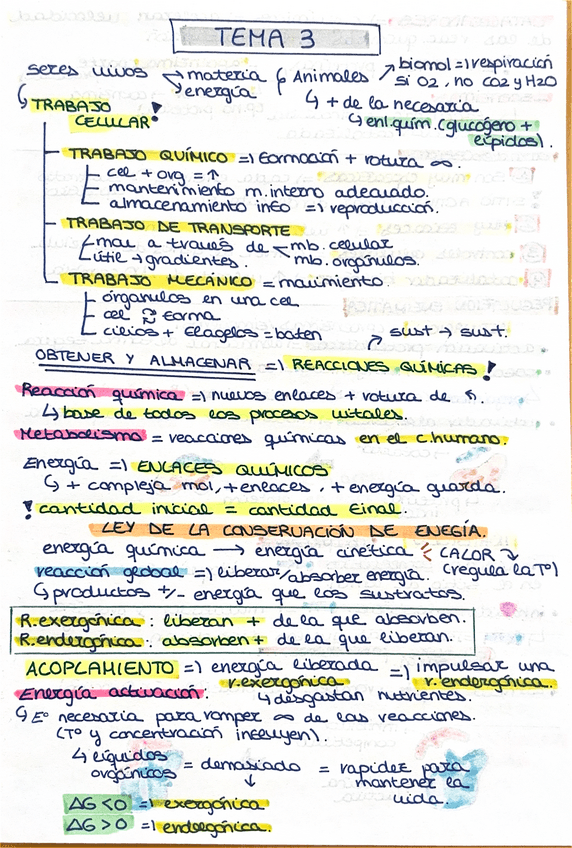 TEMA 3
seres vivos → materia
→ energía
Animales ↗ biomol => respiración
sí O2, no CO2 y H2O
↳ + de la necesaria
↳ enl. quím. (glucógeno +
lípidos).
↳ TRABAJO
CELULAR!
TRABAJO QUÍMICO => formación + rotura ∞.
cel + org = ↑
mantenimiento m. interno adecuado.
almacenamiento info => reproducción.
TRABAJO DE TRANSPORTE
mov. a través de mb. celular
mb. orgánulos.
útil → gradientes.
TRABAJO MECÁNICO = movimiento.
orgánulos en una cel
cel ⇄ forma
cilios + flagelos = baten
sust → sust.
OBTENER Y ALMACENAR => REACCIONES QUÍMICAS!
Reacción química => nuevos enlaces + rotura de ↖.
↳ base de todos los procesos vitales.
Metabolismo = reacciones químicas en el c. humano.
Energía => ENLACES QUÍMICOS
↳ + compleja mol, + enlaces, + energía guarda.
! cantidad inicial = cantidad final.
LEY DE LA CONSERVACIÓN DE ENEGÍA.
energía química → energía cinética CALOR ↘
(regula la Tº)
reacción global => liberar/absorber energía.
↳ productos +/- energía que los sustratos.
R. exergónica: liberan + de la que absorben.
R. endergónica: absorben + de la que liberan.
ACOPLAMIENTO => energía liberada => impulsar una
r. exergónica r. endergónica.
↳ desgastan nutrientes.
Energía activación:
↳ Eº necesaria para romper ∞ de las reacciones.
(Tº y concentración influyen).
↳ líquidos
orgánicos = demasiado = rapidez para
mantener la
vida.
↓
ΔG < 0 => exergónica
ΔG > 0 => endergónica.